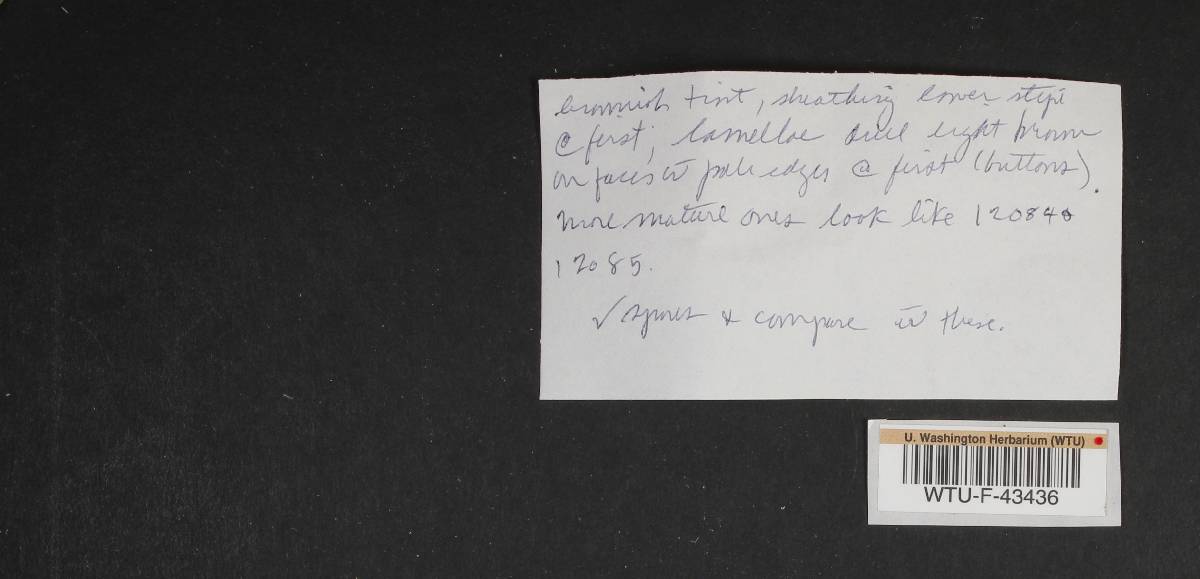 brownish tint, sheathing lower stipe
@ first; lamellae dull light brown
on faces w̄ pale edges @ first (buttons).
more mature ones look like 12084 &
12085.
✓ spores & compare w̄ these.
U. Washington Herbarium (WTU)
WTU-F-43436